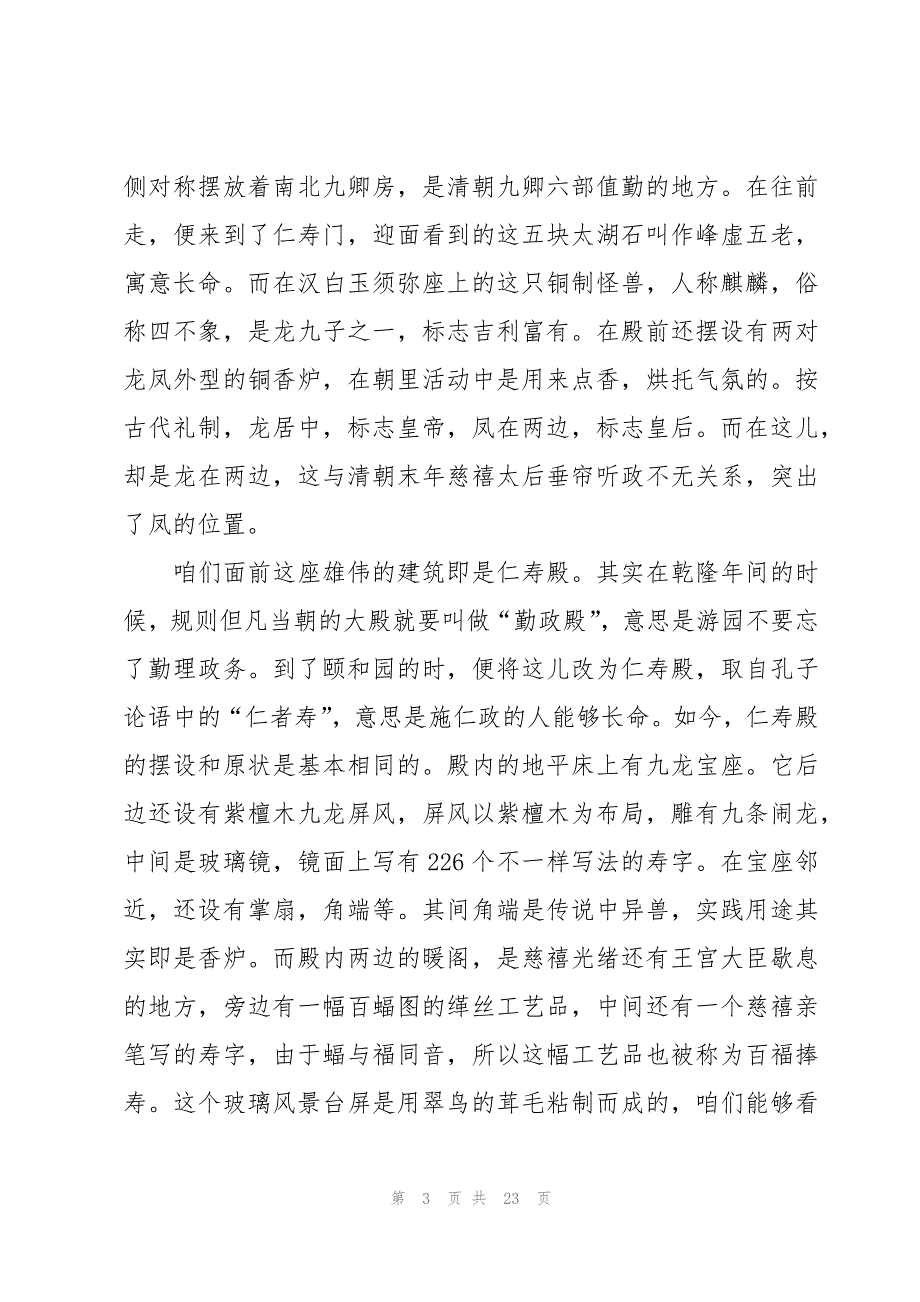 侧对称摆放着南北九卿房，是清朝九卿六部值勤的地方。在往前
走，便来到了仁寿门，迎面看到的这五块太湖石叫作峰虚五老，
寓意长命。而在汉白玉须弥座上的这只铜制怪兽，人称麒麟，俗
称四不象，是龙九子之一，标志吉利富有。在殿前还摆设有两对
龙凤外型的铜香炉，在朝里活动中是用来点香，烘托气氛的。按
古代礼制，龙居中，标志皇帝，凤在两边，标志皇后。而在这儿，
却是龙在两边，这与清朝末年慈禧太后垂帘听政不无关系，突出
了凤的位置。
咱们面前这座雄伟的建筑即是仁寿殿。其实在乾隆年间的时
候，规则但凡当朝的大殿就要叫做“勤政殿”，意思是游园不要忘
了勤理政务。到了颐和园的时，便将这儿改为仁寿殿，取自孔子
论语中的“仁者寿”，意思是施仁政的人能够长命。如今，仁寿殿
的摆设和原状是基本相同的。殿内的地平床上有九龙宝座。它后
边还设有紫檀木九龙屏风，屏风以紫檀木为布局，雕有九条闹龙，
中间是玻璃镜，镜面上写有 226 个不一样写法的寿字。在宝座邻
近，还设有掌扇，角端等。其间角端是传说中异兽，实践用途其
实即是香炉。而殿内两边的暖阁，是慈禧光绪还有王宫大臣歇息
的地方，旁边有一幅百蝠图的缂丝工艺品，中间还有一个慈禧亲
笔写的寿字，由于蝠与福同音，所以这幅工艺品也被称为百福捧
寿。这个玻璃风景台屏是用翠鸟的茸毛粘制而成的，咱们能够看
第 3 页 共 23 页